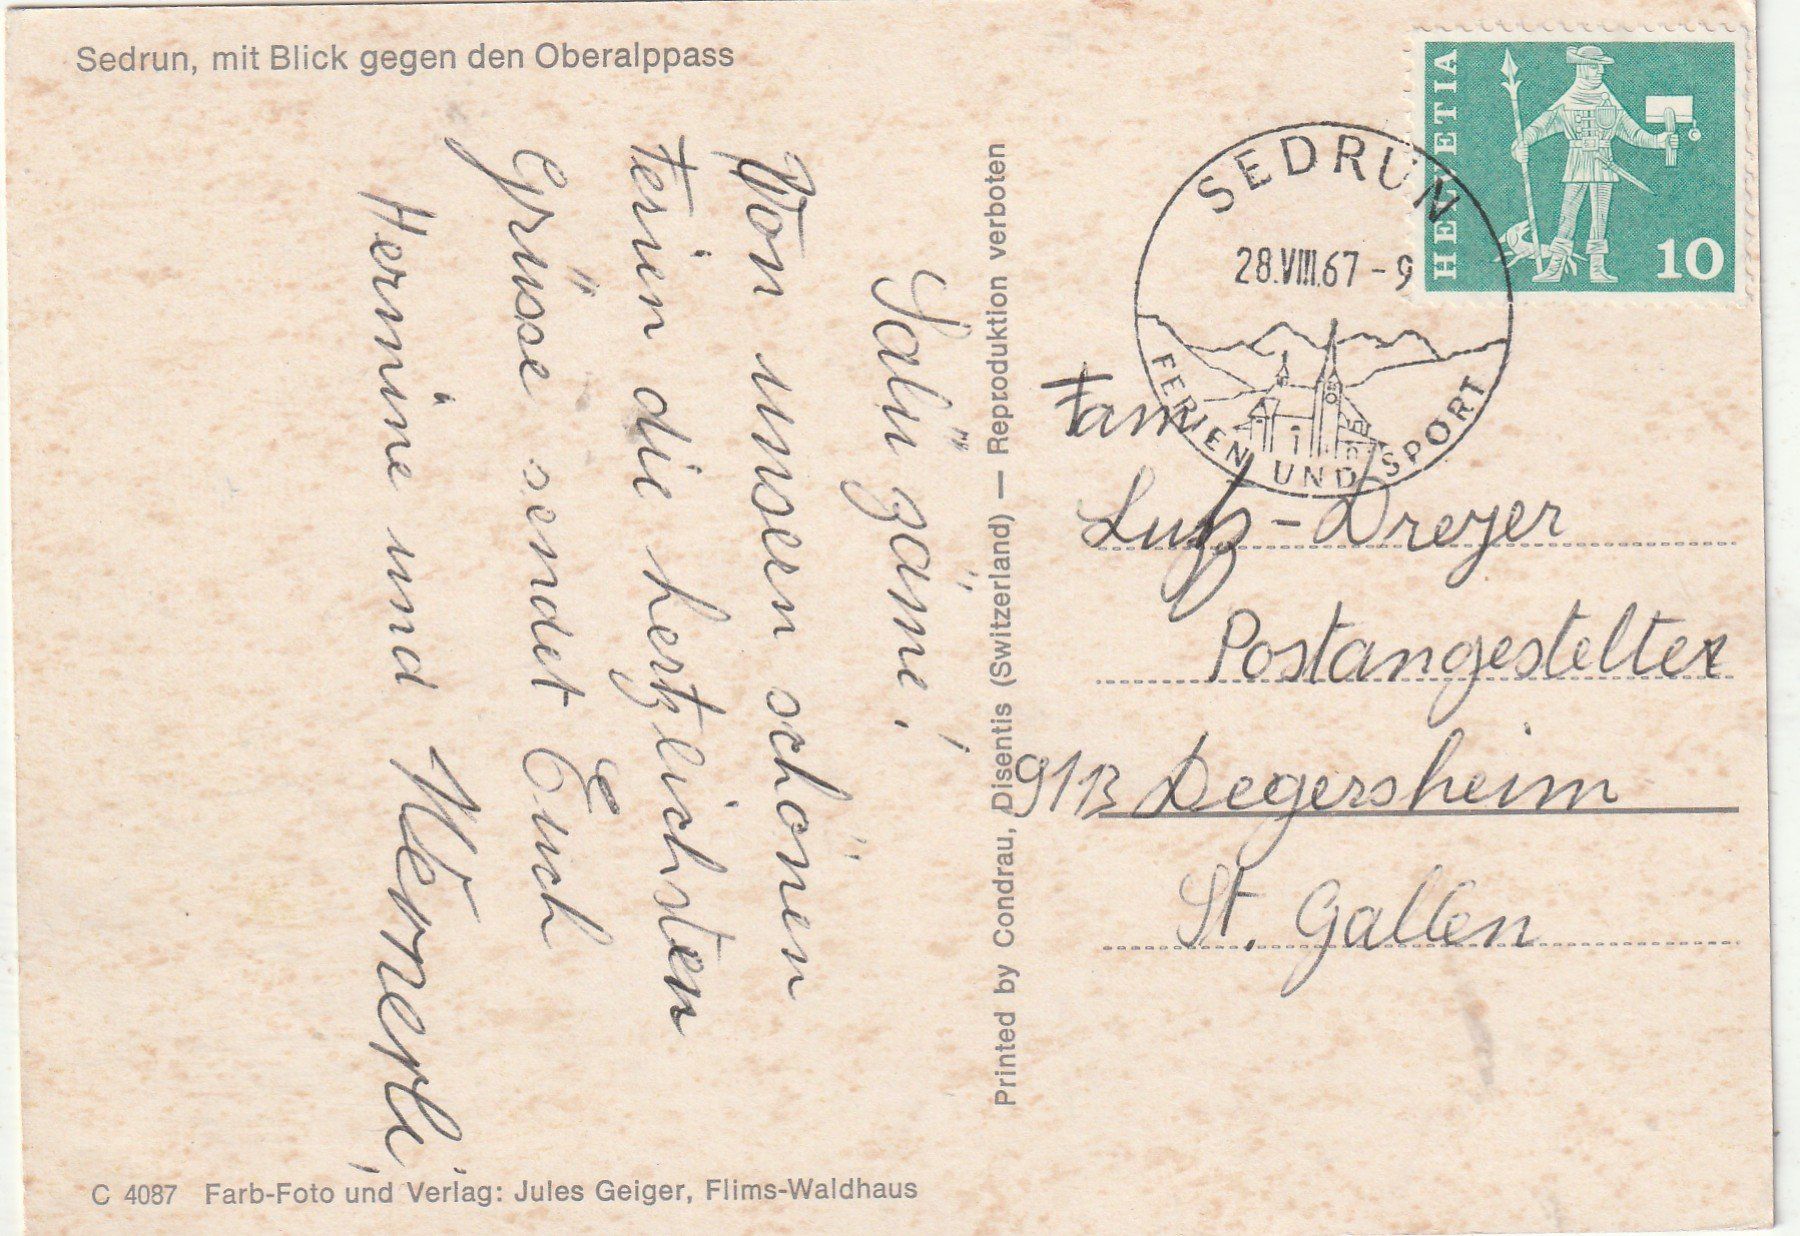 Sedrun, mit Blick gegen den Oberalppass
Salü zäme!
Von unsern schönen
Ferien die hertzlichsten
Grüsse sendet Euch
Hermine und Wernerli
C 4087 Farb-Foto und Verlag: Jules Geiger, Flims-Waldhaus
Printed by Condrau, Disentis (Switzerland) — Reproduktion verboten
HELVETIA
10
SEDRUN
28.VIII.67-9
FERIEN UND SPORT
Fam
Lutz-Dreyer
Postangestelter
9113 Degersheim
St. Gallen